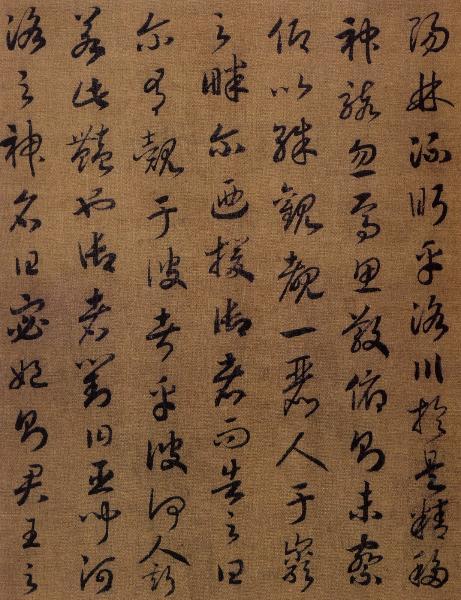 陽林流眄乎洛川於是精移
神駭忽焉思散俯則未察
仰以殊觀覩一麗人于巖
之畔爾迺援御者而告之曰
爾有覿于彼者乎彼何人斯
若此豔也御者對曰臣聞河
洛之神名曰宓妃則君王之